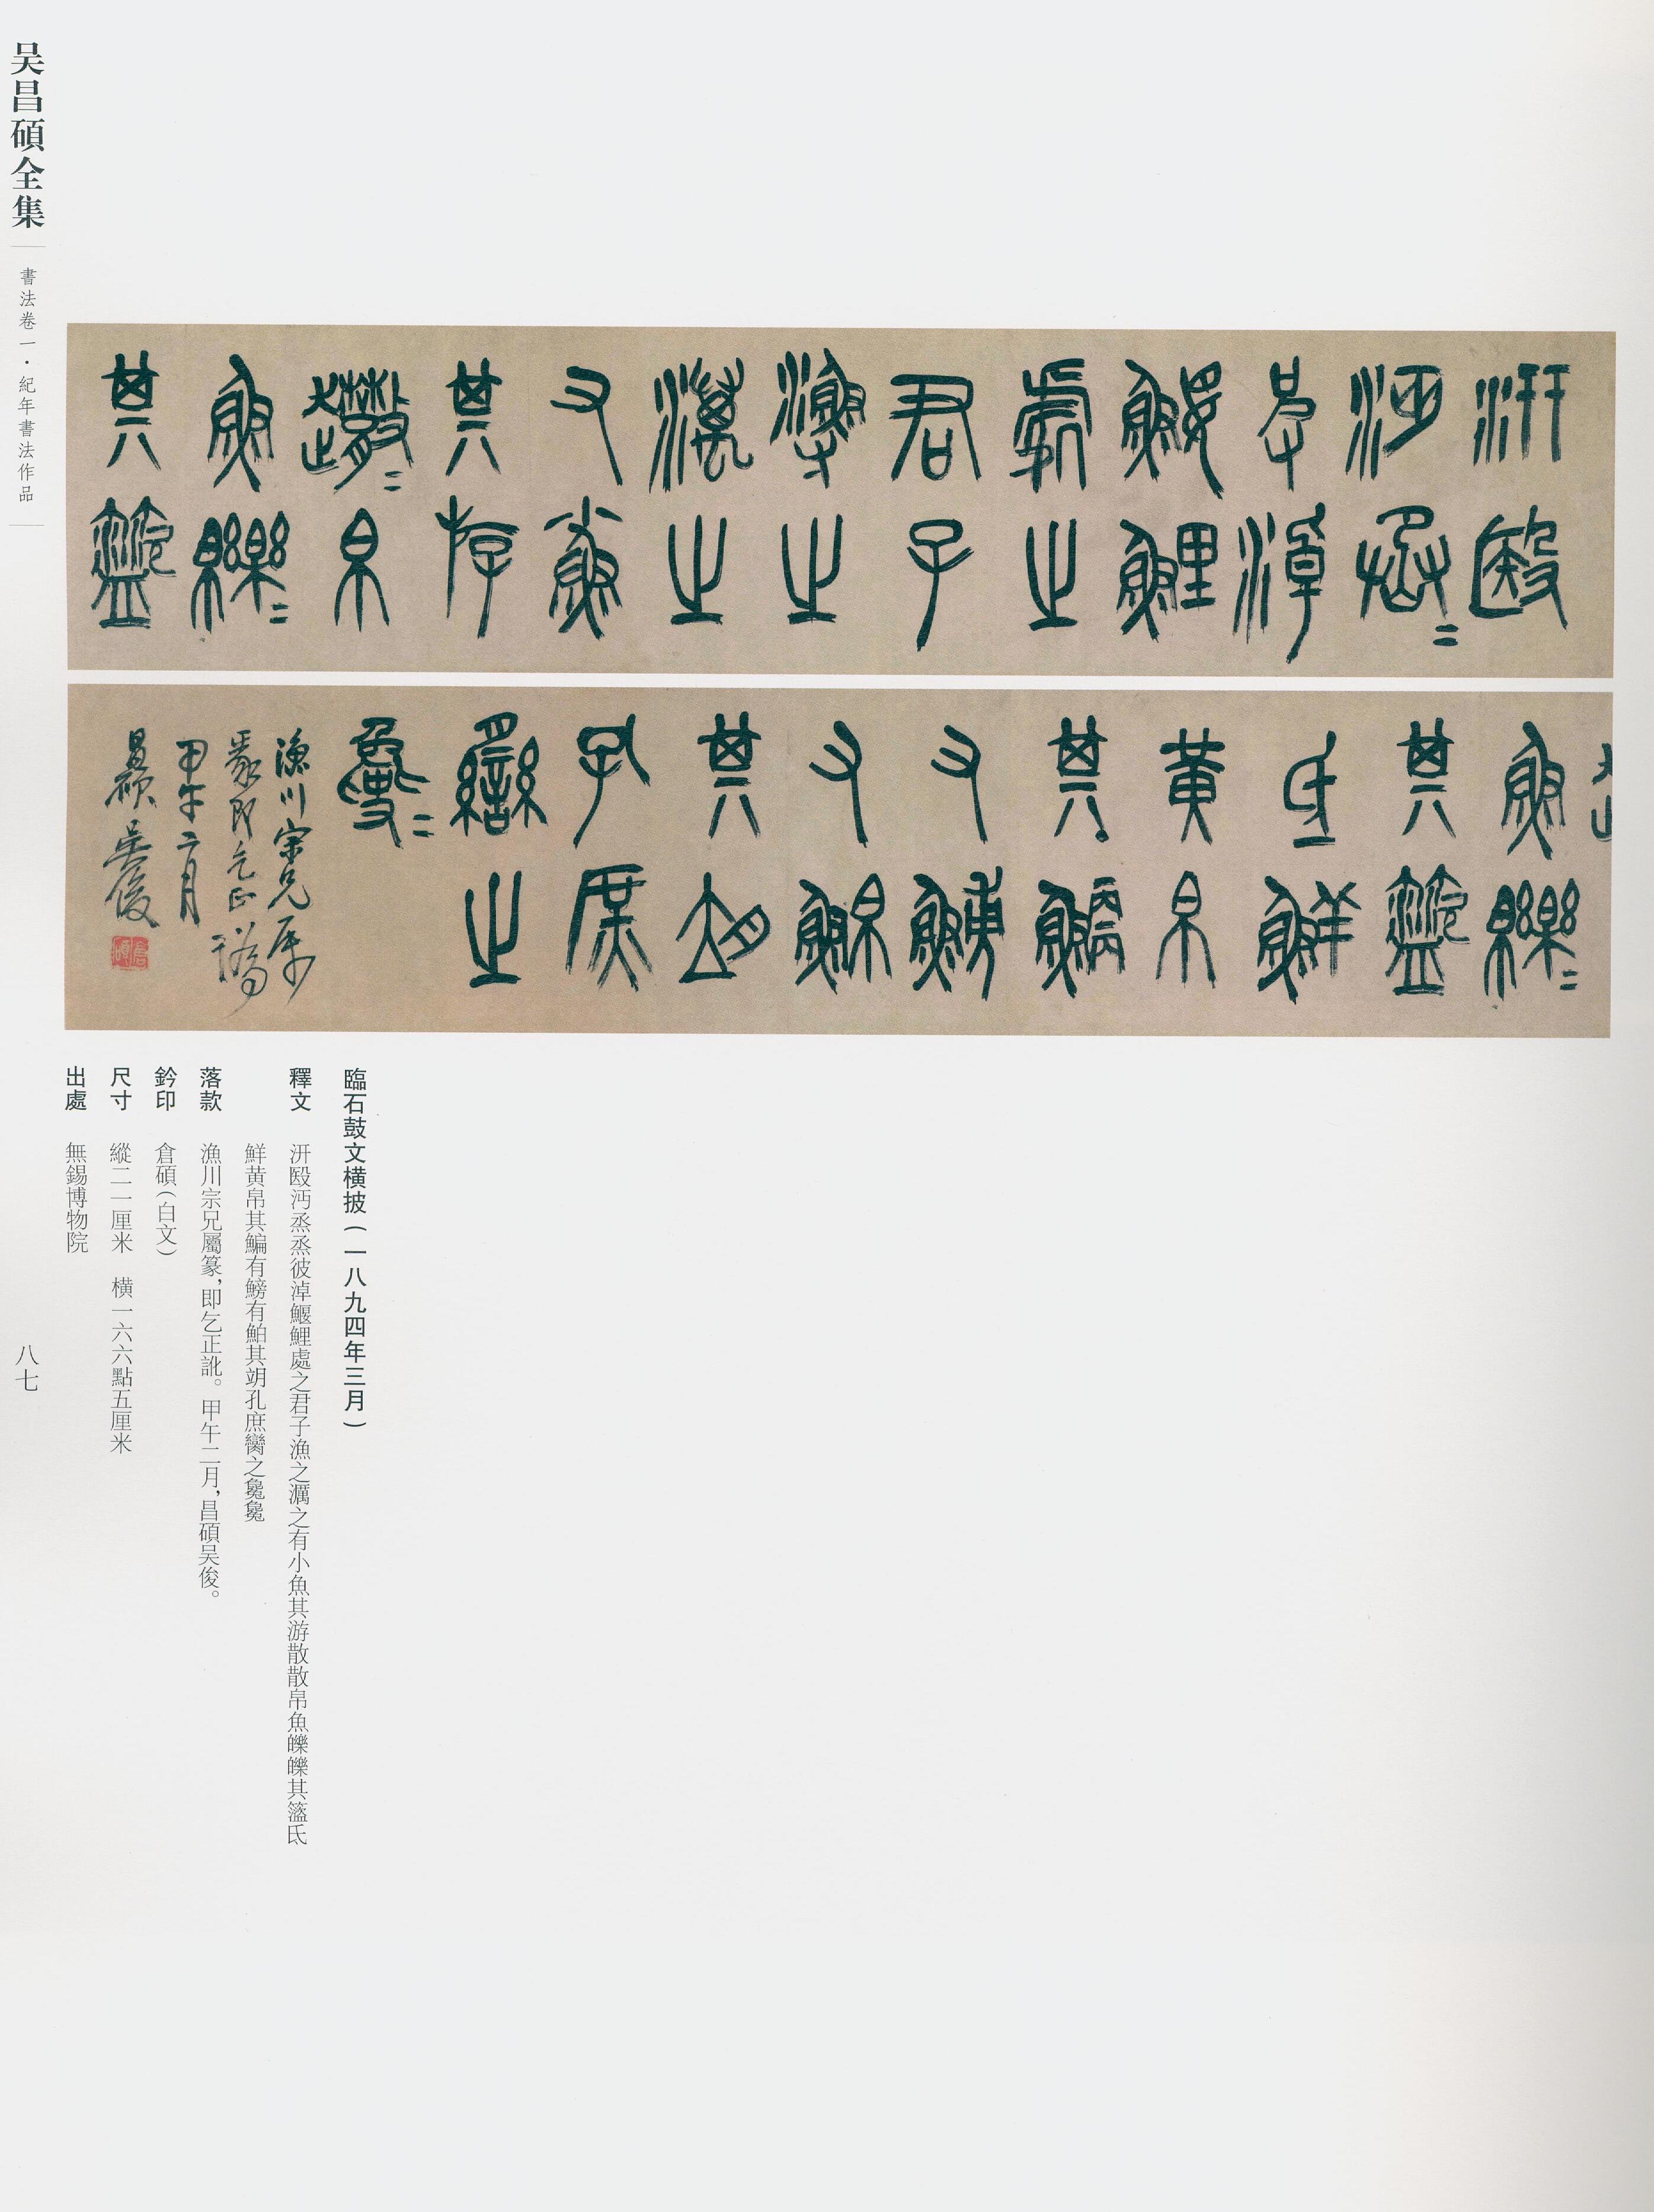 吴昌碩全集
書法卷一・紀年書法作品
汧殹
沔烝=
彼淖
鰋鯉
處之
君子
漁之
澫之
又小魚
其斿
趩=帛
魚皪=
其盜
魚皪=
其盜
氐鮮
黃帛
其鯿
又
又鮊
其
孔庶
臠之
漁川宗兄屬
篆即乞正譌
甲午二月
昌碩吴俊
臨石鼓文橫披(一八九四年三月)
釋文 汧殹沔烝烝彼淖鰋鯉處之君子漁之澫之有小魚其游散散帛魚皪皪其簜氐
鮮黄帛其鯿有鰟有鮊其胡孔庶臠之毚毚
落款 漁川宗兄屬篆,即乞正訛。甲午二月,昌碩吴俊。
鈐印 倉碩(白文)
尺寸 縱二一厘米 橫一六六點五厘米
出處 無錫博物院
八七